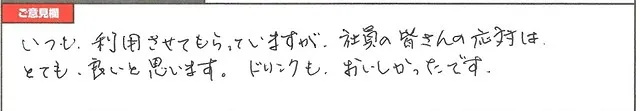 ご意見欄
いつも、利用させてもらっていますが、社員の皆さんの応対は、
とても、良いと思います。ドリンクも、おいしかったです.